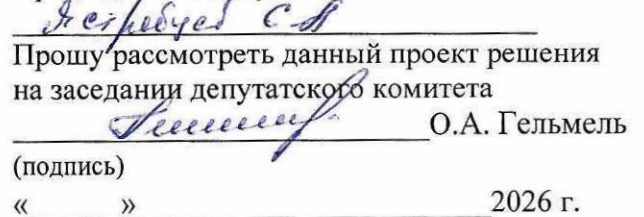 Ястребцев С А
Прошу рассмотреть данный проект решения
на заседании депутатского комитета
О.А. Гельмель
(подпись)
« » 2026 г.